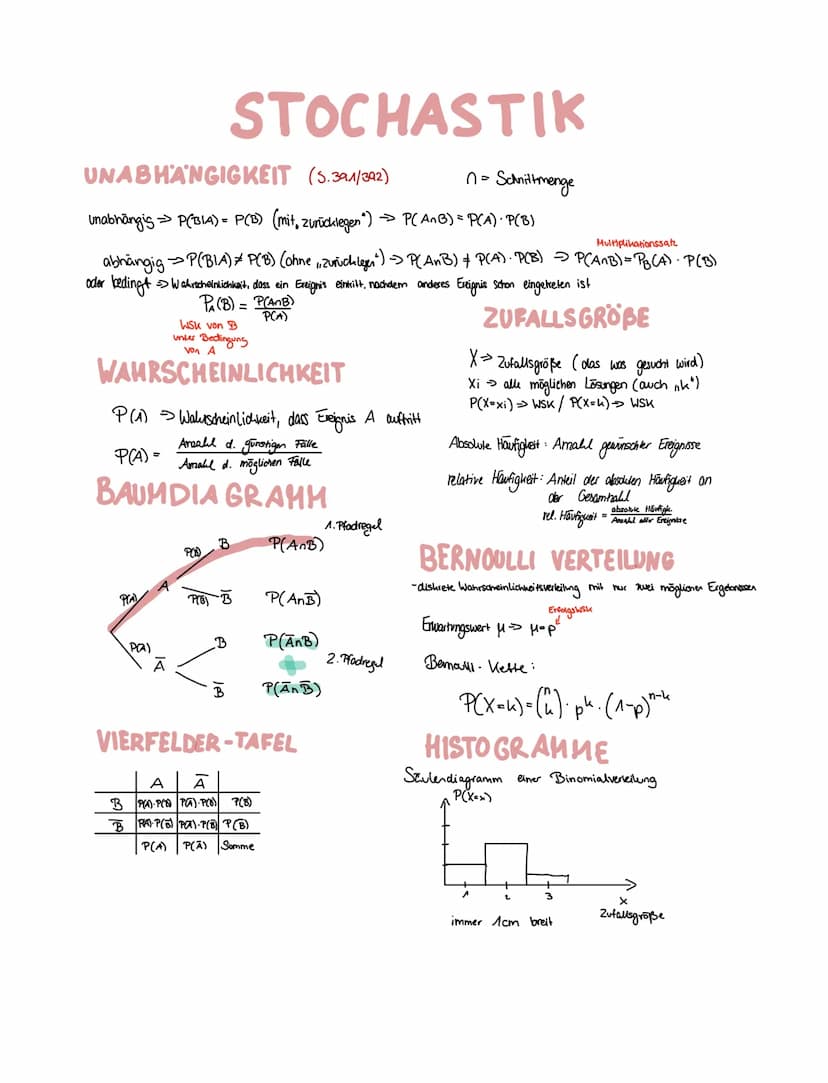 STOCHASTIK
UNABHÄNGIGKEIT (S.391/392)
∩ = Schnittmenge
unabhängig => P(B|A) = P(B) (mit „zurücklegen") => P(A∩B) = P(A) · P(B)
Multiplikationssatz
abhängig => P(B|A) ≠ P(B) (ohne „zurücklegen") => P(A∩B) ≠ P(A) · P(B) => P(A∩B) = P_B(A) · P(B)
oder bedingt => Wahrscheinlichkeit, dass ein Ereignis eintritt, nachdem anderes Ereignis schon eingetreten ist
P_A(B) = P(A∩B) / P(A)
WSK von B
unter Bedingung
von A
WAHRSCHEINLICHKEIT
P(A) => Wahrscheinlichkeit, dass Ereignis A auftritt
P(A) = Anzahl d. günstigen Fälle / Anzahl d. möglichen Fälle
BAUMDIAGRAMM
1. Pfadregel
P(B) B P(A∩B)
P(A) A
P(B̅) B̅ P(A∩B̅)
P(A̅) A̅
B P(A̅∩B)
+ 2. Pfadregel
B̅ P(A̅∩B̅)
VIERFELDER-TAFEL
A A̅
B P(A)·P(B) P(A̅)·P(B) P(B)
B̅ P(A)·P(B̅) P(A̅)·P(B̅) P(B̅)
P(A) P(A̅) Summe
ZUFALLSGRÖßE
X => Zufallsgröße (das was gesucht wird)
Xi => alle möglichen Lösungen (auch „k")
P(X=xi) => WSK / P(X=k) => WSK
Absolute Häufigkeit: Anzahl gewünschter Ereignisse
relative Häufigkeit: Anteil der absoluten Häufigkeit an
der Gesamtzahl
rel. Häufigkeit = absolute Häufigk. / Anzahl aller Ereignisse
BERNOULLI VERTEILUNG
- diskrete Wahrscheinlichkeitsverteilung mit nur zwei möglichen Ergebnissen
Erfolgswsk
Erwartungswert μ => μ=p
Bernoulli-Kette:
P(X=k) = (n k) · p^k · (1-p)^n-k
HISTOGRAMME
Säulendiagramm einer Binomialverteilung
P(X=x)
1 2 3
x
Zufallsgröße
immer 1cm breit